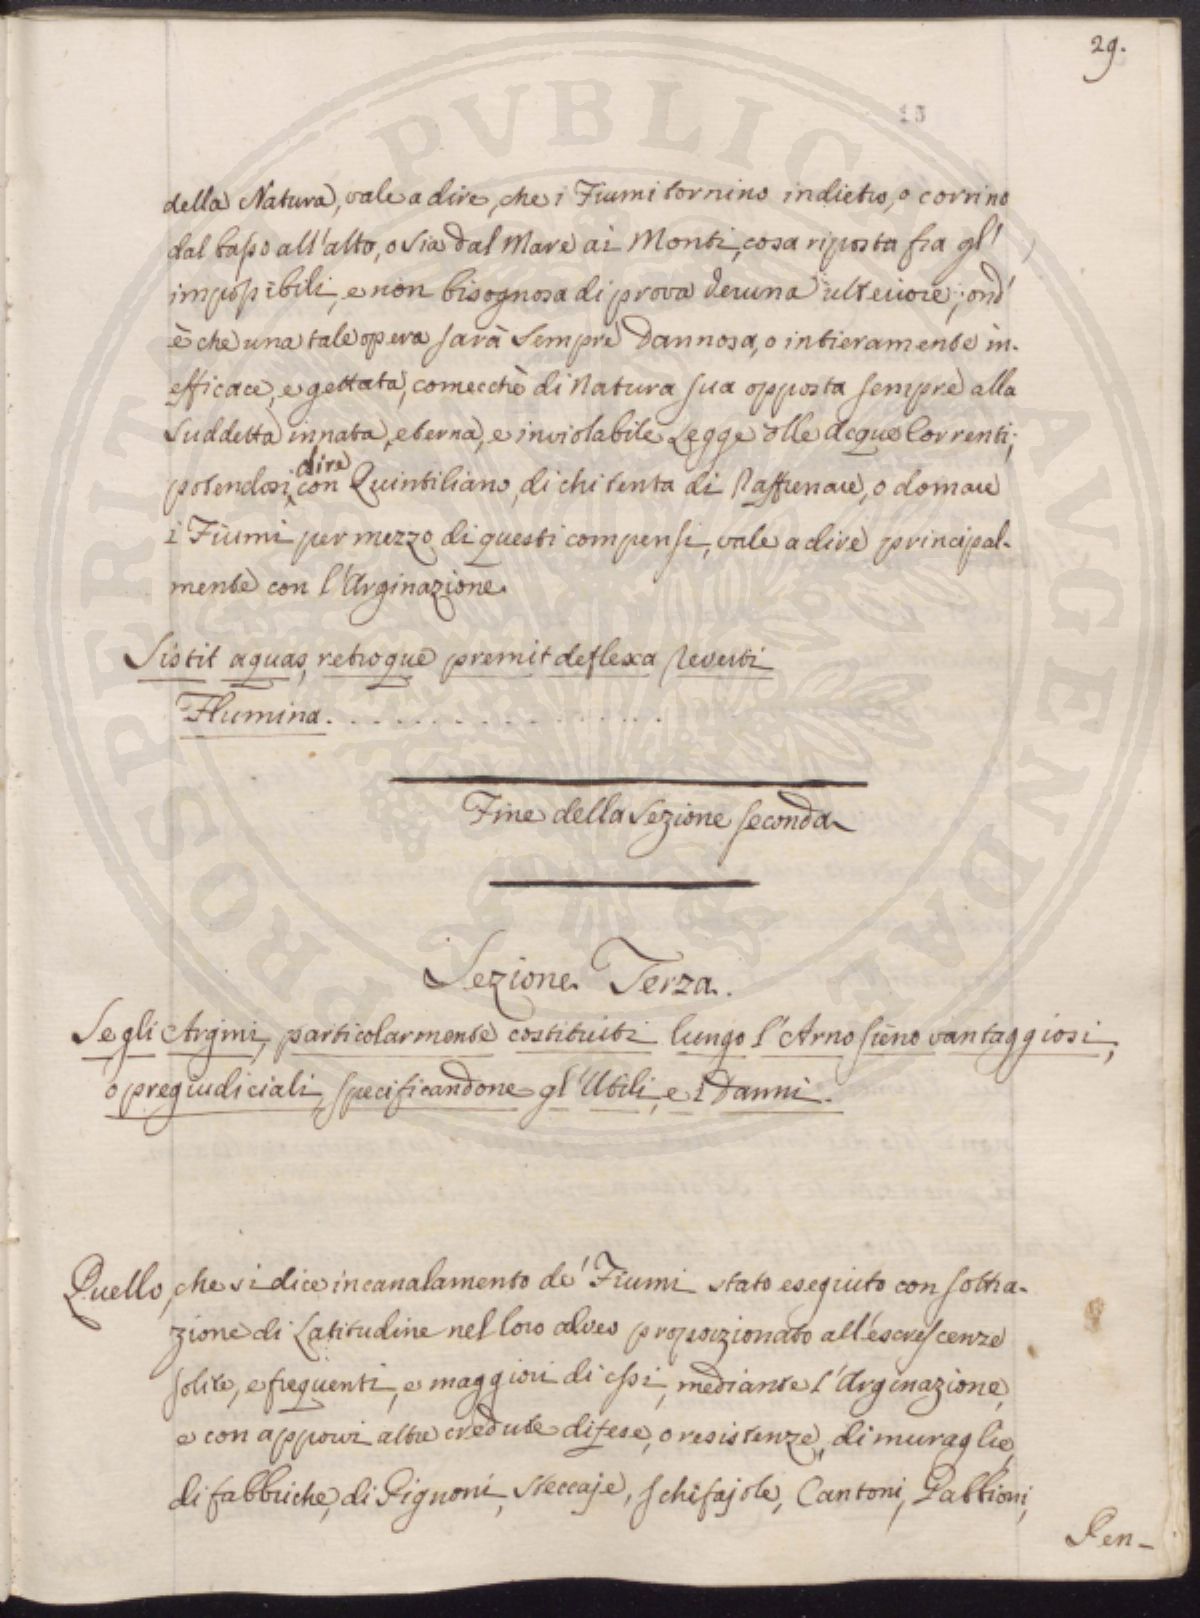 29.
15
della Natura, vale a dire, che i Fiumi tornino indietro, o corrino
dal basso all'alto, o sia dal Mare ai Monti, cosa riposta fra gl'
impossibili, e non bisognosa di prova veruna ulteriore; ond'
è che una tale opera sarà sempre dannosa, o intieramente in-
efficace, e gettata, comecchè di Natura sua opposta sempre alla
suddetta innata, eterna, e inviolabile Legge delle Acque Correnti;
potendosi dire con Quintiliano, di chi tenta di Raffrenare, o domare
i Fiumi per mezzo di questi compensi, vale a dire principal-
mente con l'Arginazione.
Sistit aquas, retroque premit deflexa reverti
Flumina. . . . . . . . . . . . . . . .
Fine della Sezione seconda
Sezione Terza.
Se gli Argini, particolarmente costituiti lungo l'Arno sieno vantaggiosi,
o pregiudiciali, specificandone gl'Utili, e i Danni.
Quello, che si dice incanalamento de' Fiumi stato eseguito con sottra-
zione di Latitudine nel loro alveo proporzionato all'escrescenze
solite, e frequenti, e maggiori di essi, mediante l'Arginazione,
e con apporvi altre credute difese, o resistenze, di muraglie,
di fabbriche, di Pignoni, Steccaje, schifajole, Cantoni, Gabbioni,
Pen-
PROSPERITATI PVBLICAE AVGENDAE